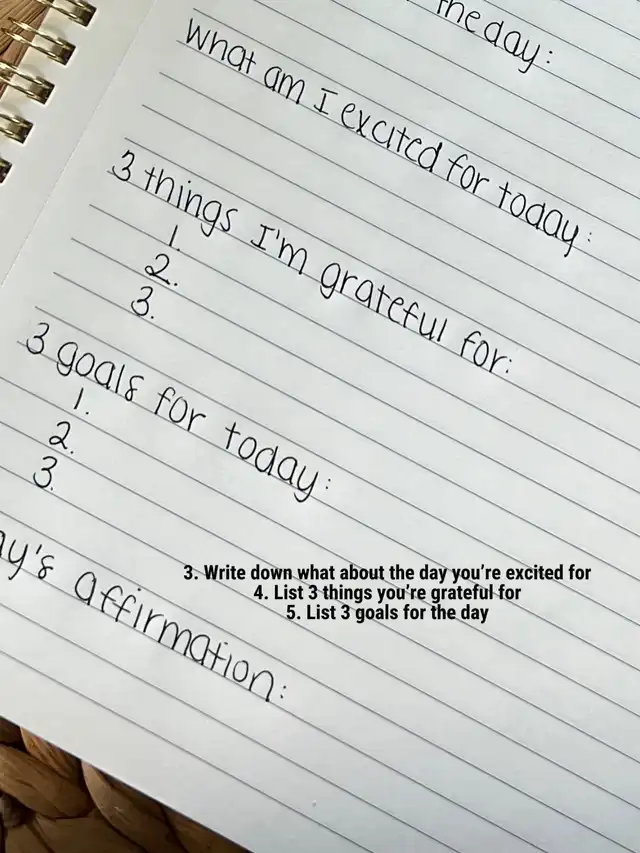 the day:
What am I excited for today:
3 things I'm grateful for:
1.
2.
3.
3 goals for today:
1.
2.
3.
ay's affirmation:
3. Write down what about the day you're excited for
4. List 3 things you're grateful for
5. List 3 goals for the day